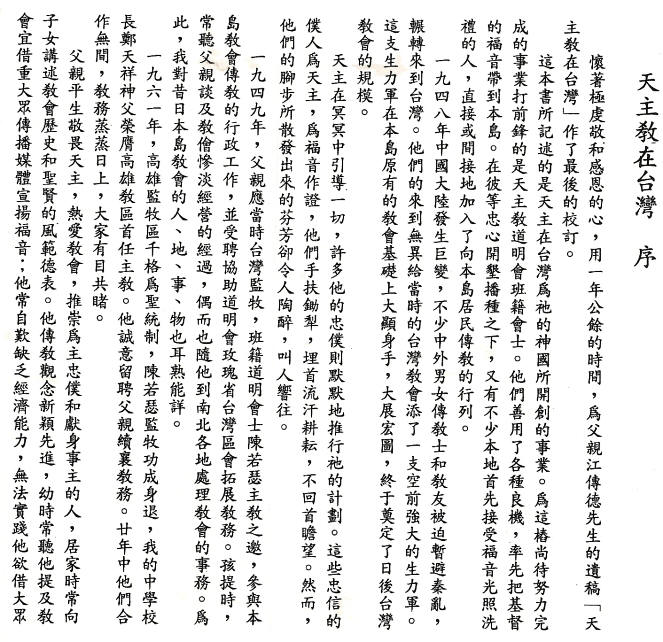 天主教在台灣 序
懷著極虔敬和感恩的心，用一年公餘的時間，爲父親江傳德先生的遺稿「天
主教在台灣」作了最後的校訂。
這本書所記述的是天主在台灣爲祂的神國所開創的事業。爲這樁尚待努力完
成的事業打前鋒的是天主教道明會班籍會士。他們善用了各種良機，率先把基督
的福音帶到本島。在彼等忠心開墾播種之下，又有不少本地首先接受福音光照洗
禮的人，直接或間接地加入了向本島居民傳教的行列。
一九四八年中國大陸發生巨變，不少中外男女傳教士和教友被迫暫避秦亂，
輾轉來到台灣。他們的來到無異給當時的台灣教會添了一支空前強大的生力軍。
這支生力軍在本島原有的教會基礎上大顯身手，大展宏圖，終于奠定了日後台灣
教會的規模。
天主在冥冥中引導一切，許多他的忠僕則默默地推行祂的計劃。這些忠信的
僕人爲天主，爲福音作證，他們手扶鋤犁，埋首流汗耕耘，不回首瞻望。然而，
他們的腳步所散發出來的芬芳卻令人陶醉，叫人響往。
一九四九年，父親應當時台灣監牧，班籍道明會士陳若瑟主教之邀，參與本
島教會傳教的行政工作，並受聘協助道明會玫瑰省台灣區會拓展教務。孩提時，
常聽父親談及教僧慘淡經營的經過，偶而也隨他到南北各地處理教會的事務。爲
此，我對昔日本島教會的人、地、事、物也耳熟能詳。
一九六一年，高雄監牧區千格爲聖統制，陳若瑟監牧功成身退，我的中學校
長鄭天祥神父榮膺高雄教區首任主教。他誠意留聘父親續襄教務。廿年中他們合
作無間，教務蒸蒸日上，大家有目共睹。
父親平生敬畏天主，熱愛教會，推崇爲主忠僕和獻身事主的人，居家時常向
子女講述教會歷史和聖賢的風範德表。他傳教觀念新穎先進，幼時常聽他提及教
會宜借重大眾傳播媒體宣揚福音；他常自歎缺乏經濟能力，無法實踐他欲借大眾